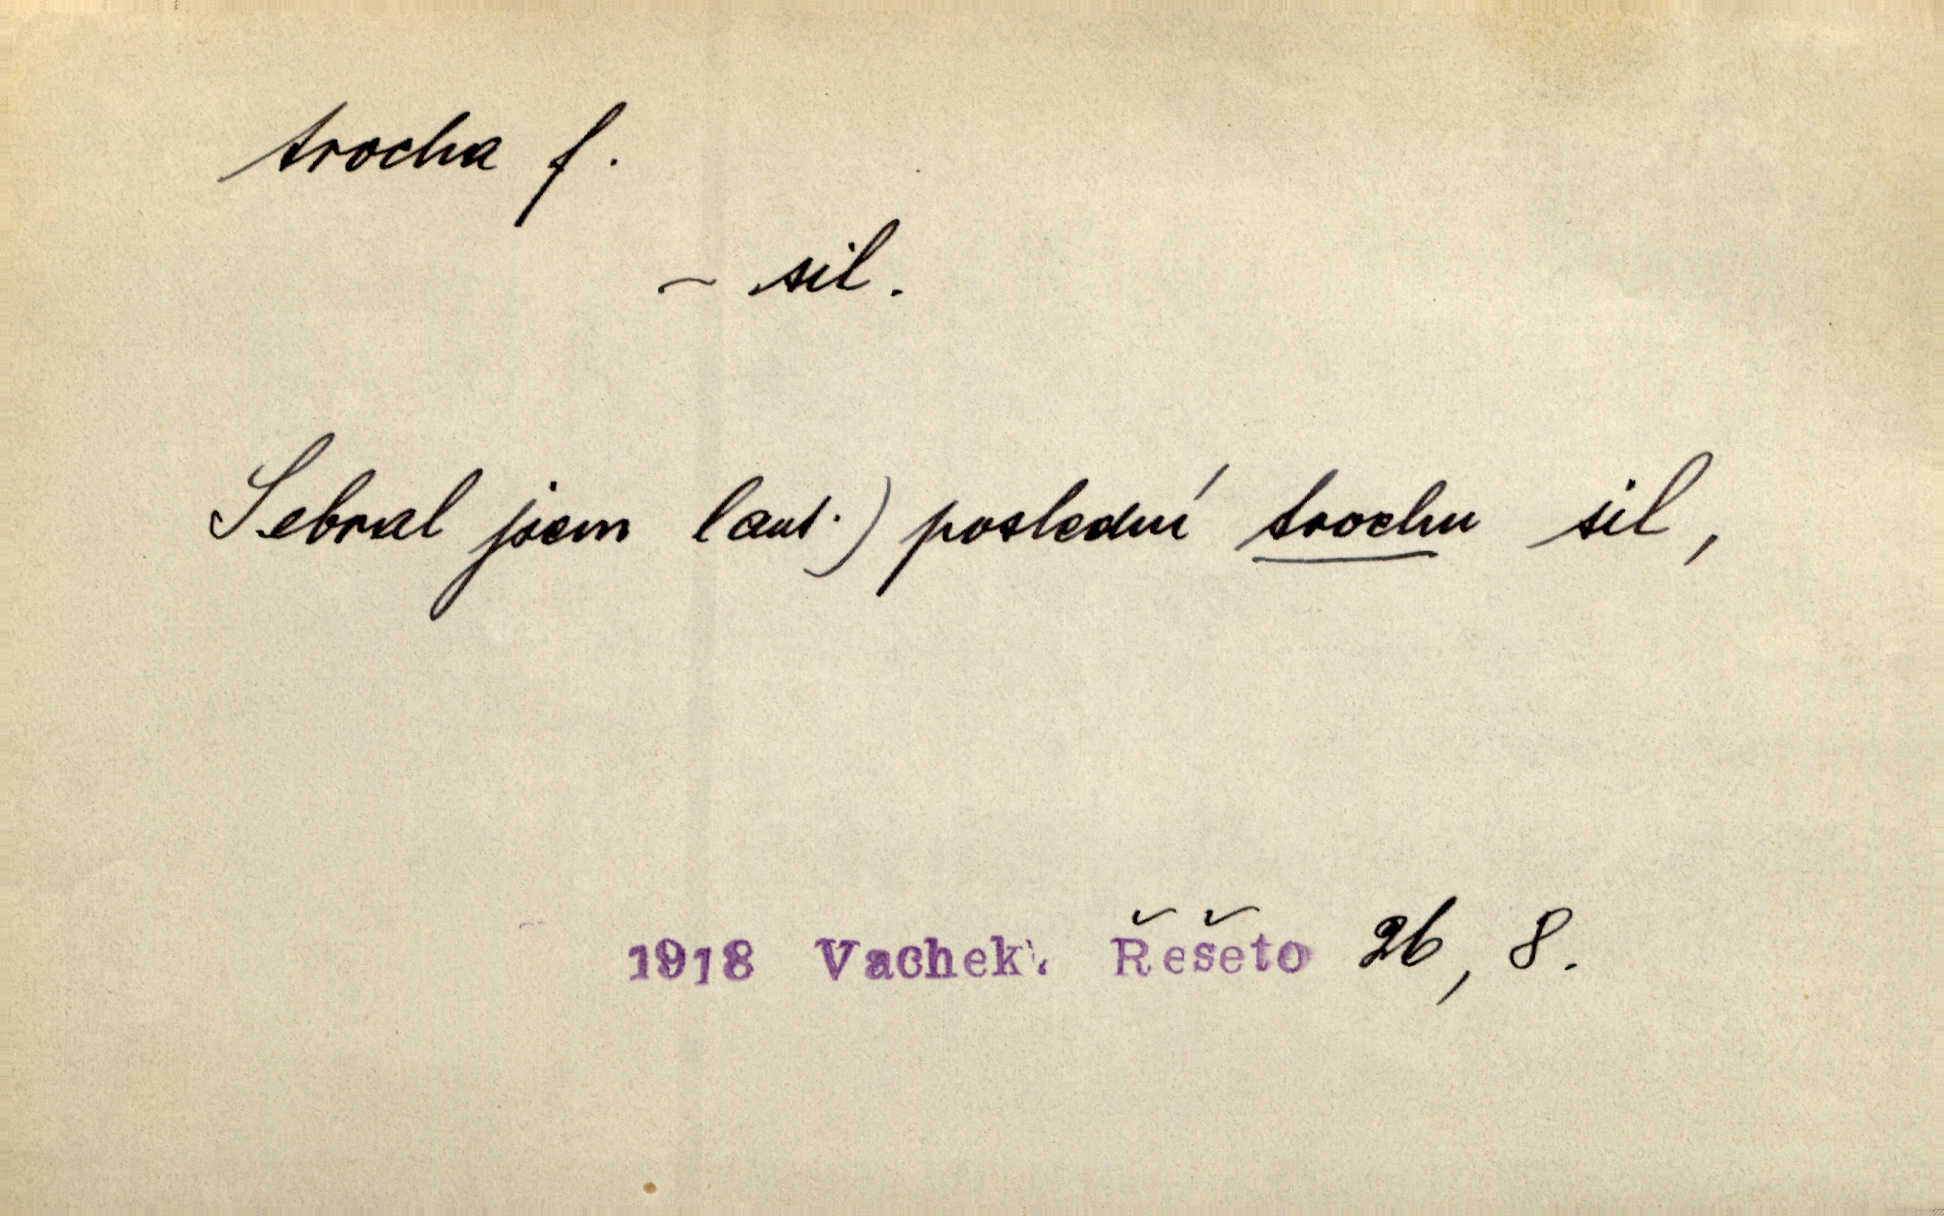 trocha f.
~ sil.
Sebral jsem (aut.) poslední trochu sil,
1918 Vachek. Řešeto 26, 8.